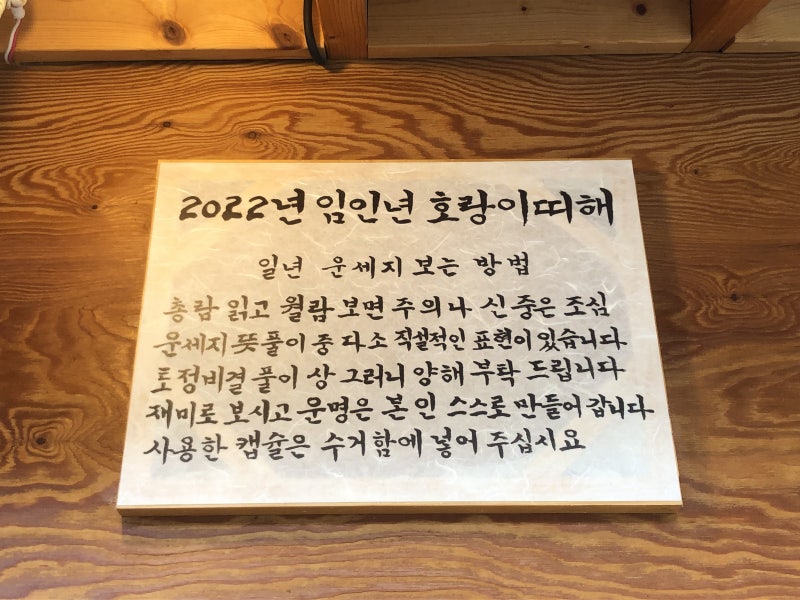 2022년 임인년 호랑이띠해
일년 운세지 보는 방법
총람 읽고 월람 보면 주의나 신중은 조심
운세지 뜻풀이 중 다소 직설적인 표현이 있습니다
토정비결 풀이 상 그러니 양해 부탁 드립니다
재미로 보시고 운명은 본인 스스로 만들어 갑니다
사용한 캡슐은 수거함에 넣어 주십시요